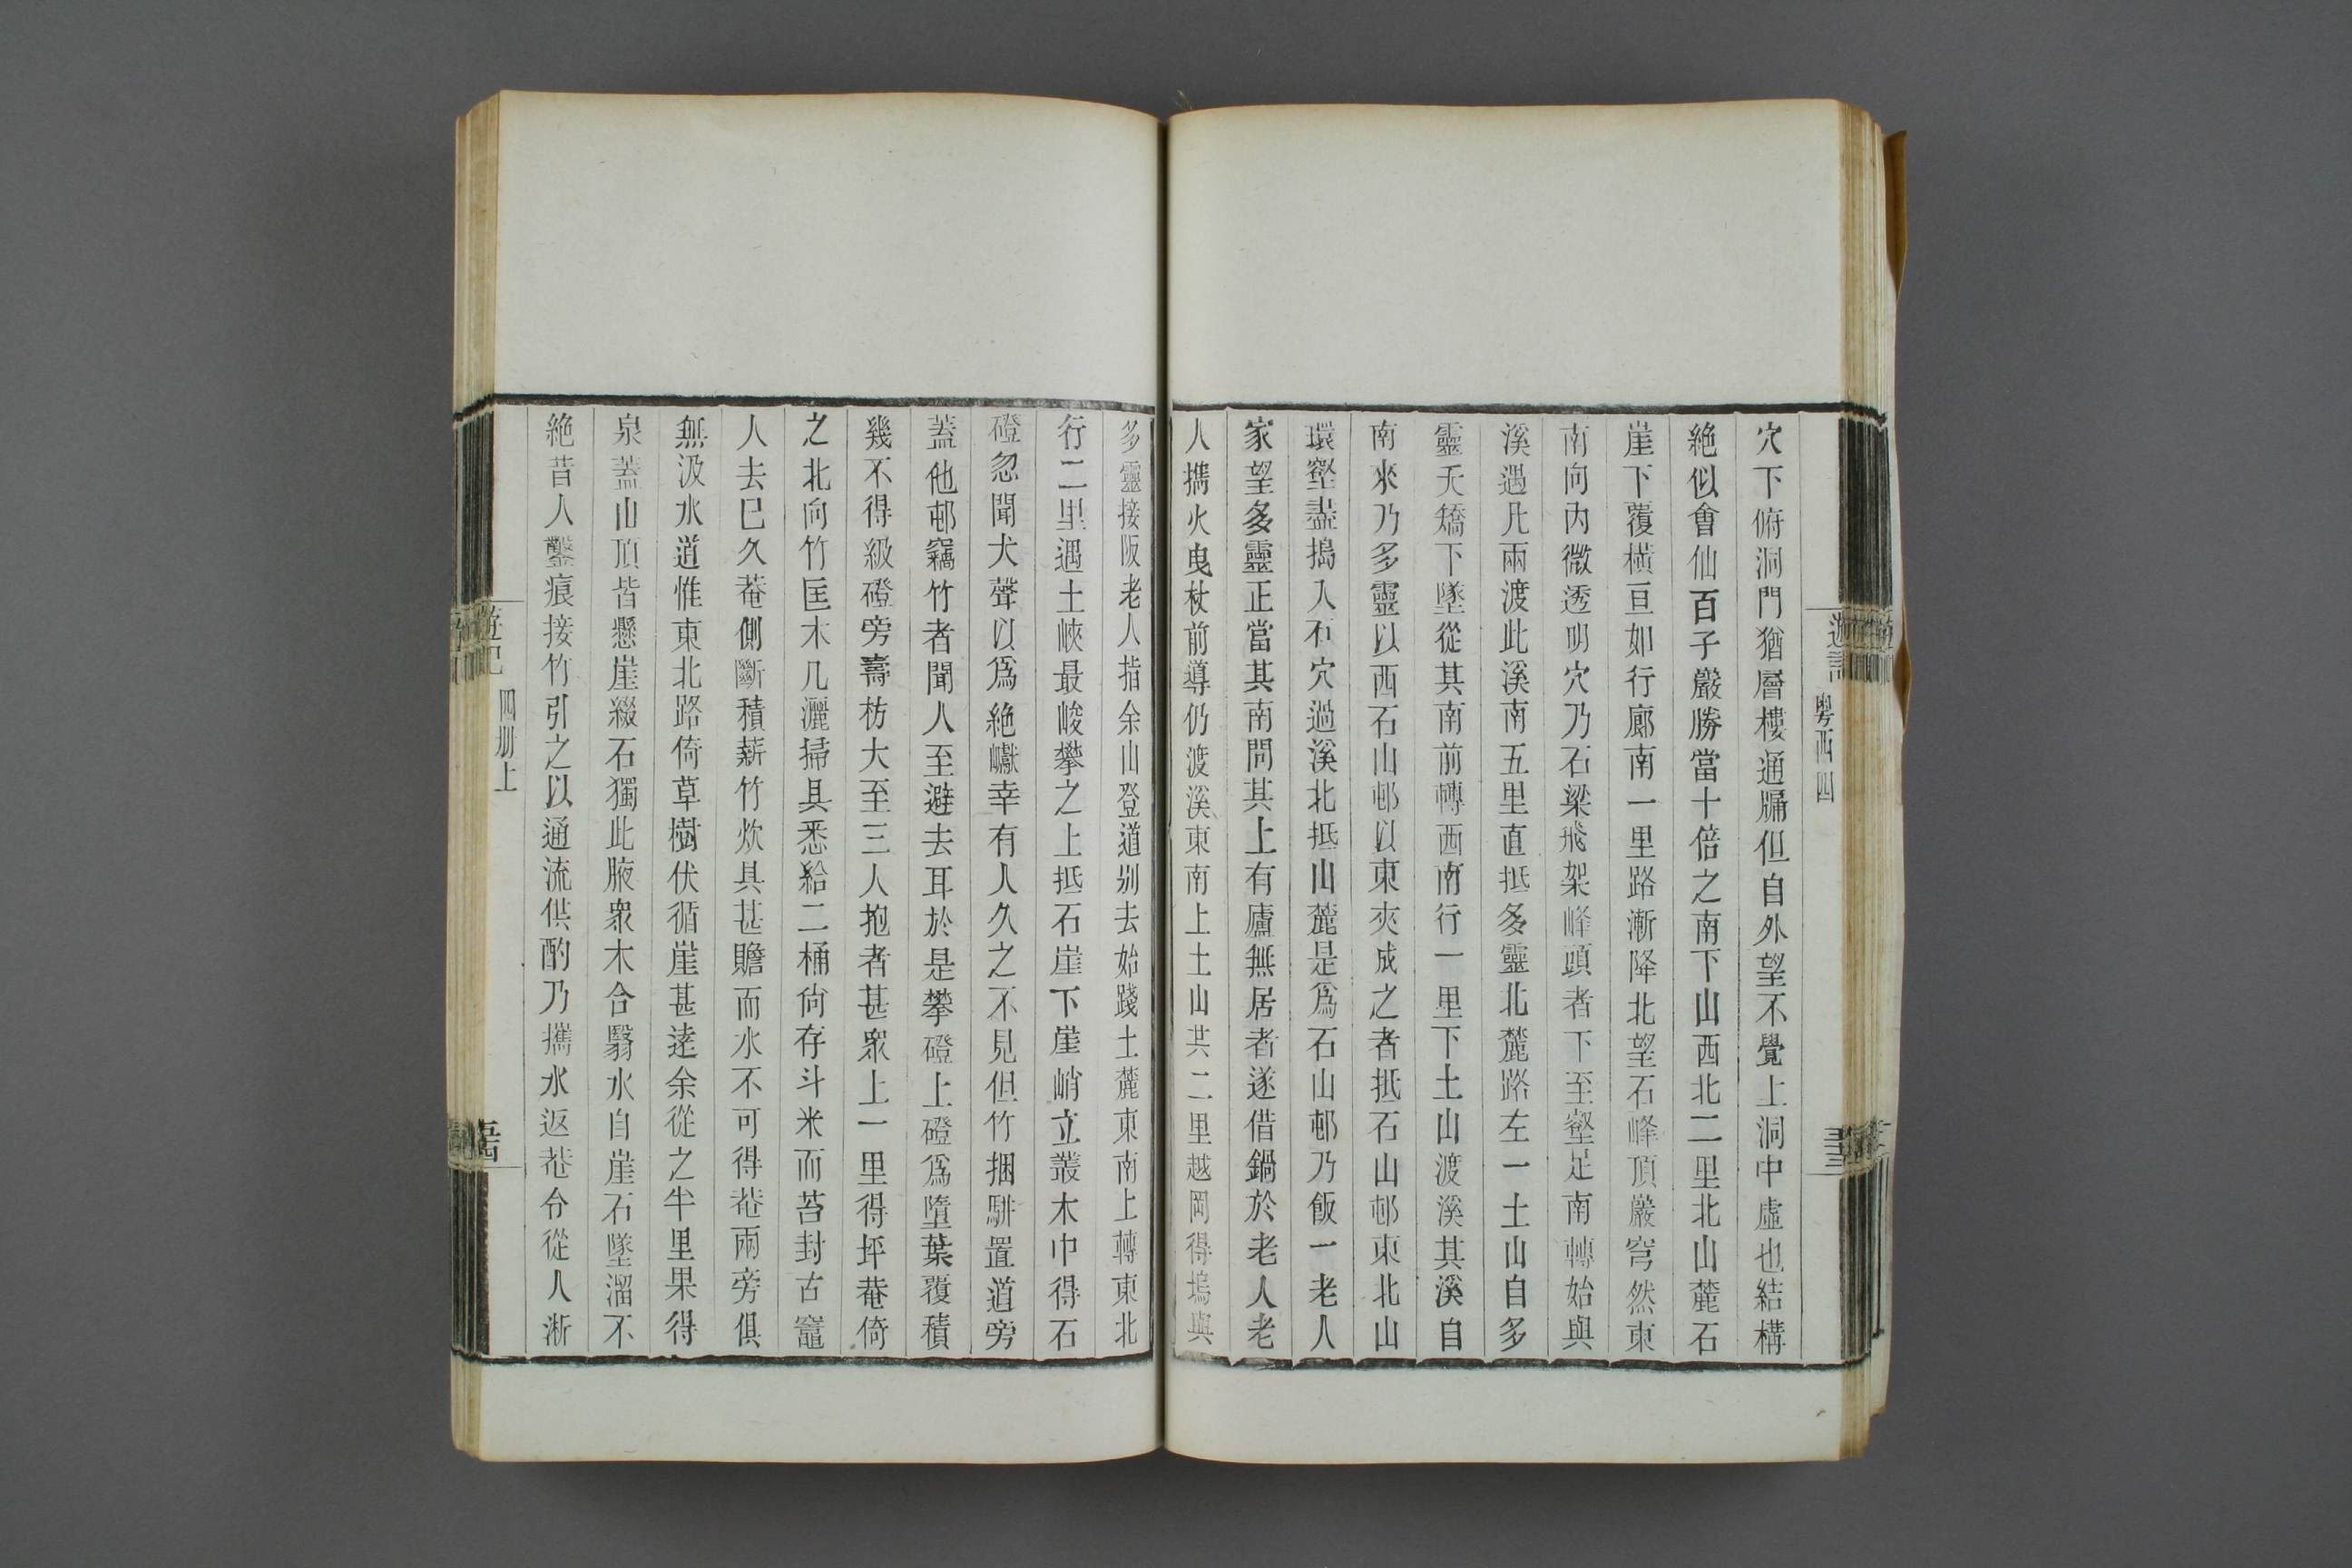 粵西四
穴下俯洞門猶層樓通牖但自外望不覺上洞中虛也結構
絶似會仙百子巖勝當十倍之南下山西北二里北山麓石
崖下覆橫亘如行廊南一里路漸降北望石峰頂巖穹然東
南向內微透明穴乃石梁飛架峰頭者下至壑足南轉始與
溪遇凡兩渡此溪南五里直抵多靈北麓路左一土山自多
靈夭矯下墜從其南前轉西南行一里下土山渡溪其溪自
南來乃多靈以西石山邨以東夾成之者抵石山邨東北山
環壑盡搗入石穴過溪北抵山麓是爲石山邨乃飯一老人
家望多靈正當其南問其上有廬無居者遂借鍋於老人老
人攜火曳杖前導仍渡溪東南上土山共二里越岡得塢與
多靈接阪老人指余山登道別去始踐土麓東南上轉東北
行二里遇土峽最峻攀之上抵石崖下崖峭立叢木中得石
磴忽聞犬聲以爲絶巘幸有人久之不見但竹捆駢置道旁
蓋他邨竊竹者聞人至避去耳於是攀磴上磴爲墮葉覆積
幾不得級磴旁壽枋大至三人抱者甚衆上一里得坪菴倚
之北向竹匡木几灑掃具悉給二桶尙存斗米而苔封古竈
人去已久菴側斷積薪竹炊具甚贍而水不可得菴兩旁俱
無汲水道惟東北路倚草樹伏循崖甚逺余從之半里果得
泉蓋山頂皆懸崖綴石獨此腋衆木合翳水自崖石墜溜不
絶昔人鑿痕接竹引之以通流供酌乃攜水返菴令從人淅
遊記
四册上